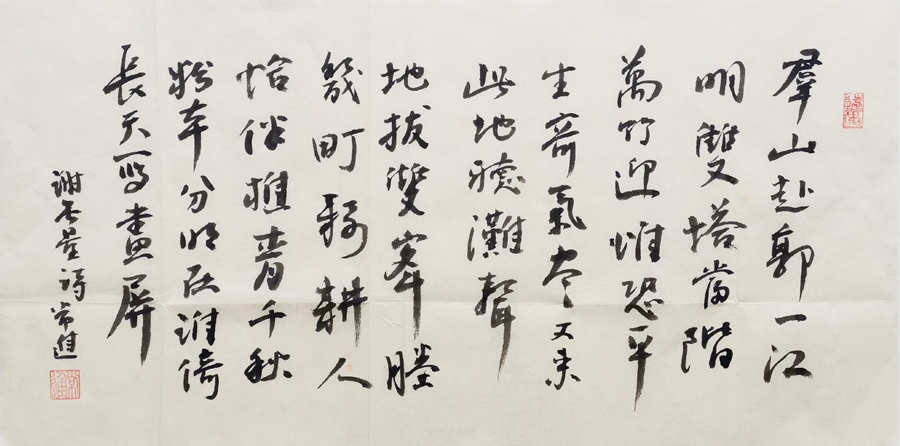 羣山赴郭一江
明雙塔當階
萬竹迎惟恐平
生奇氣盡又來
此地聽灘聲
地拔雙峯塍
幾町躬耕人
恰伴樵青千秋
粉本分明在誰倚
長天寫畫屏
謝無量詩 常進